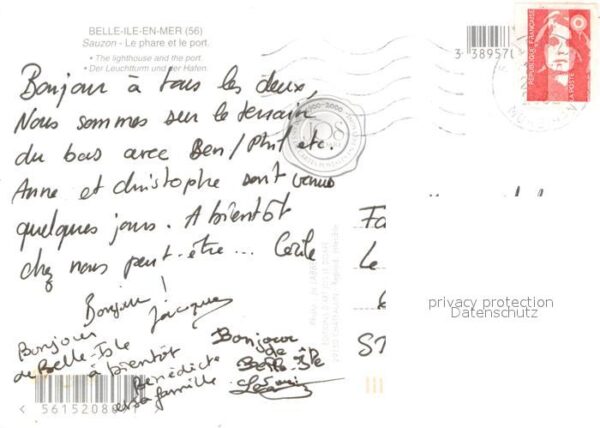 BELLE-ILE-EN-MER (56)
Sauzon - Le phare et le port.
• The lighthouse and the port.
• Der Leuchtturm und der Hafen.
3 389570
RÉPUBLIQUE FRANÇAISE
LA POSTE
Bonjour à tous les deux,
Nous sommes sur le terrain
du bas avec Ben/Phil etc.
Anne et christophe sont venus
quelques jours. A bientôt
chez nous peut-être... Cécile
Bonjour!
Jacques
Bonjour
de Belle-Isle
à bientôt
Bénédicte
et sa famille
Bonjour
de
Belle île
Fa
Le
ST
privacy protection
Datenschutz
5615208